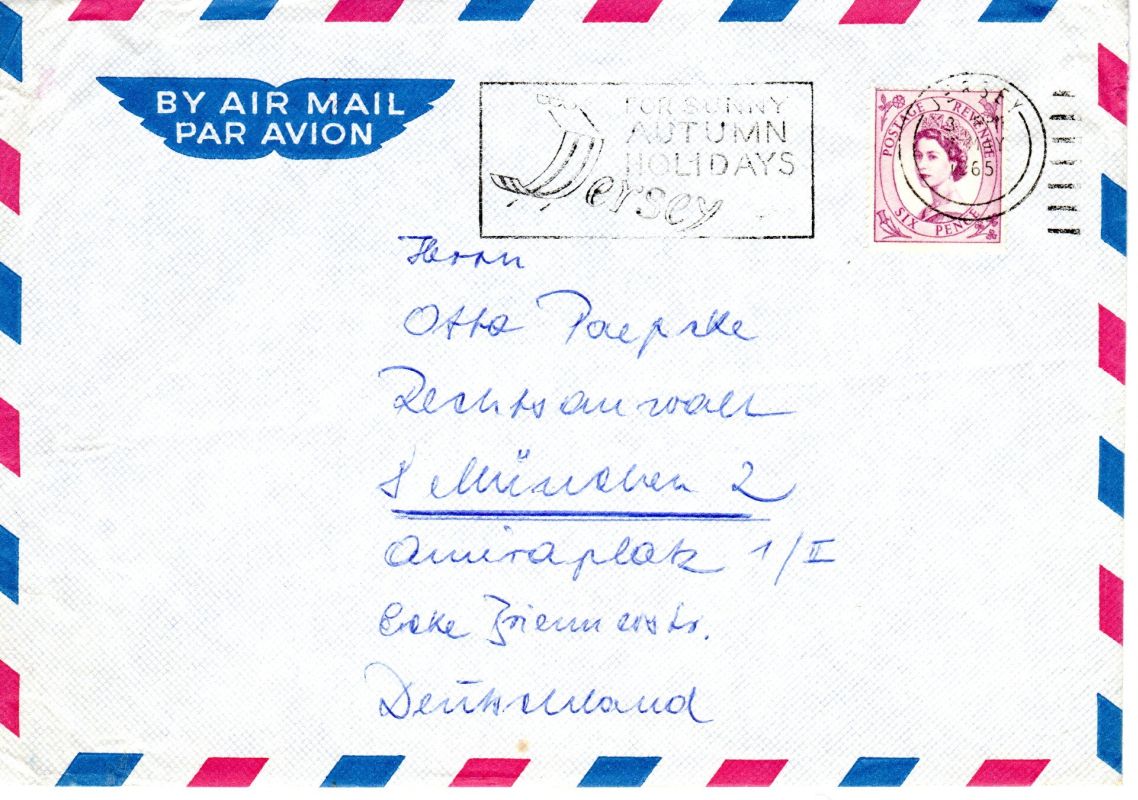 BY AIR MAIL
PAR AVION
FOR SUNNY
AUTUMN
HOLIDAYS
Jersey
JERSEY
65
POSTAGE REVENUE
SIX PENCE
Herrn
Otto Paepcke
Rechtsanwalt
8 München 2
Amiraplatz 1/II
Ecke Briennerstr.
Deutschland